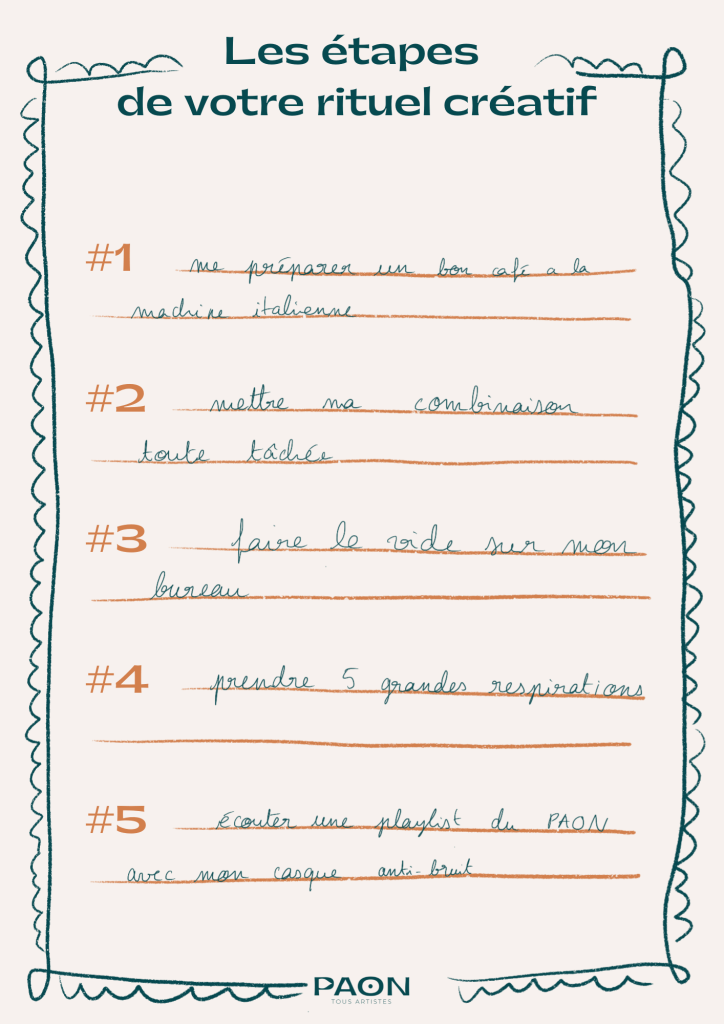 Les étapes
de votre rituel créatif
#1 me préparer un bon café a la
machine italienne
#2 mettre ma combinaison
toute tâchée
#3 faire le vide sur mon
bureau
#4 prendre 5 grandes respirations
#5 écouter une playlist du PAON
avec mon casque anti-bruit
PAON
TOUS ARTISTES